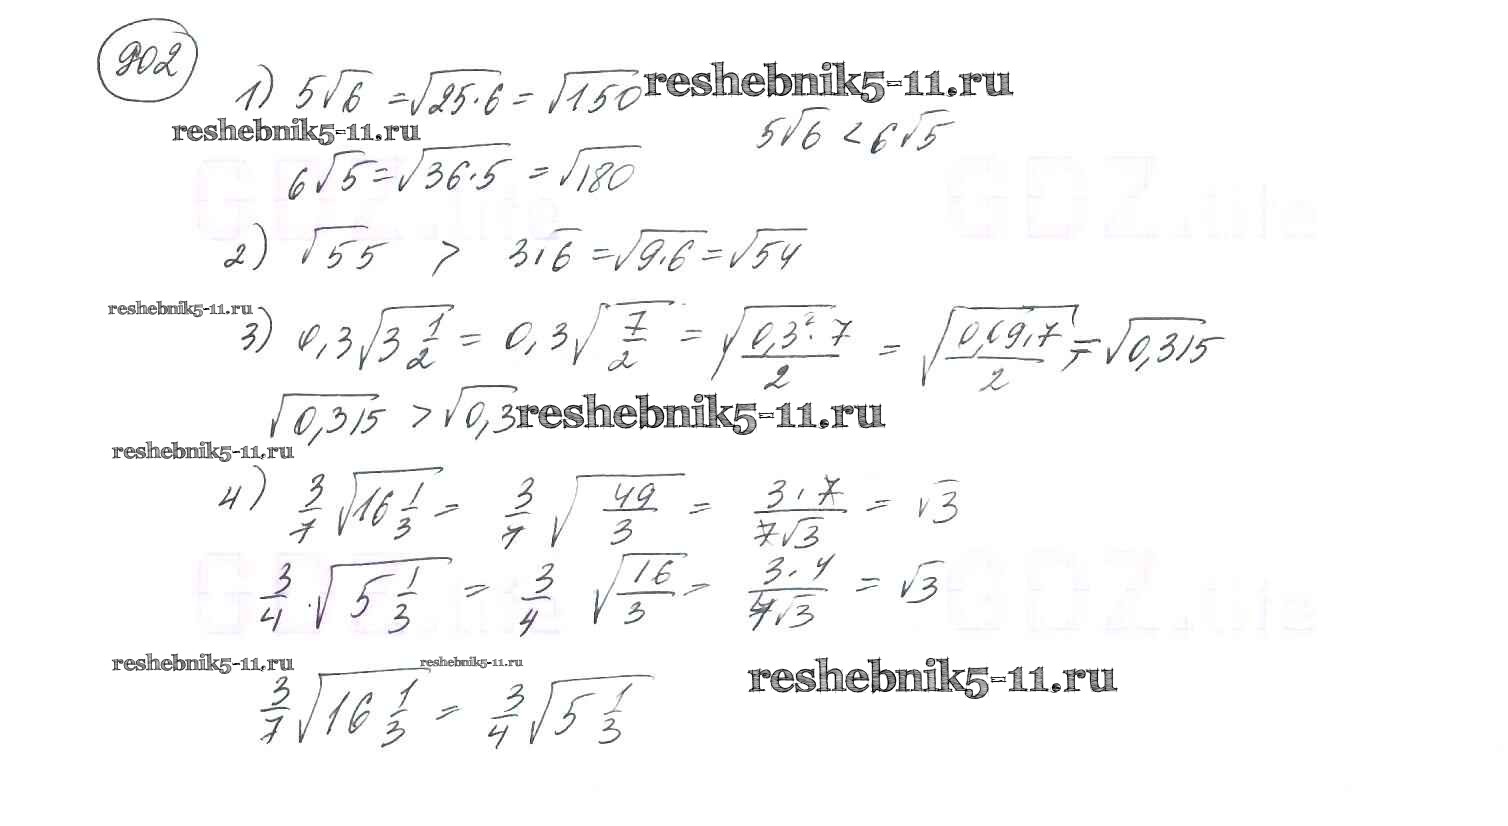 902
1) 5√6 = √25·6 = √150 reshebnik5-11.ru
reshebnik5-11.ru 5√6 < 6√5
6√5 = √36·5 = √180
GDZ.life GDZ.life
2) √55 > 3√6 = √9·6 = √54
reshebnik5-11.ru
3) 0,3√3 1/2 = 0,3√7/2 = √0,3²·7/2 = √0,09·7/2 = √0,315
√0,315 > √0,3 reshebnik5-11.ru
reshebnik5-11.ru
4) 3/7 √16 1/3 = 3/7 √49/3 = 3·7/7√3 = √3
3/4 · √5 1/3 = 3/4 √16/3 = 3·4/4√3 = √3
GDZ.life GDZ.life
reshebnik5-11.ru reshebnik5-11.ru reshebnik5-11.ru
3/7 √16 1/3 = 3/4 √5 1/3